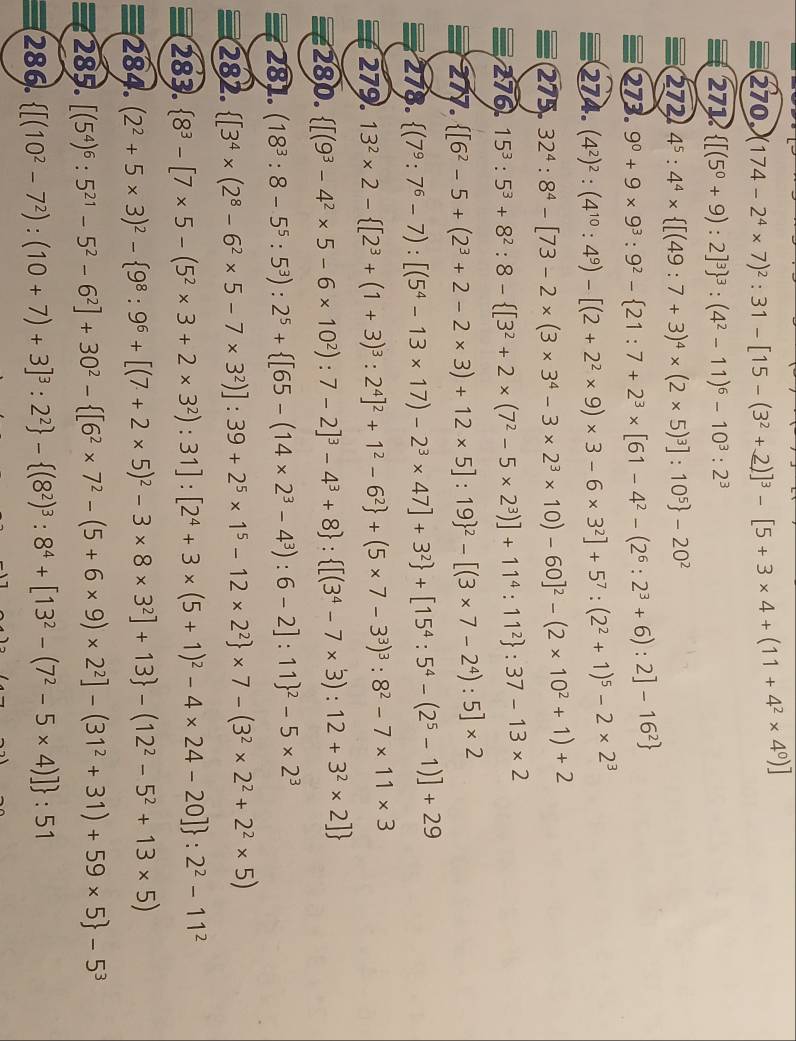 270. (174 − 2⁴ × 7)² : 31 − [15 − (3² + 2)]³ − [5 + 3 × 4 + (11 + 4² × 4⁰)]
271. {[(5⁰ + 9) : 2]³}³ : (4² − 11)⁶ − 10³ : 2³
272. 4⁵ : 4⁴ × {[(49 : 7 + 3)⁴ × (2 × 5)³] : 10⁵} − 20²
273. 9⁰ + 9 × 9³ : 9² − {21 : 7 + 2³ × [61 − 4² − (2⁶ : 2³ + 6) : 2] − 16²}
274. (4²)² : (4¹⁰ : 4⁹) − [(2 + 2² × 9) × 3 − 6 × 3²] + 5⁷ : (2² + 1)⁵ − 2 × 2³
275. 32⁴ : 8⁴ − [73 − 2 × (3 × 3⁴ − 3 × 2³ × 10) − 60]² − (2 × 10² + 1) + 2
276. 15³ : 5³ + 8² : 8 − {[3² + 2 × (7² − 5 × 2³)] + 11⁴ : 11²} : 37 − 13 × 2
277. {[6² − 5 + (2³ + 2 − 2 × 3) + 12 × 5] : 19}² − [(3 × 7 − 2⁴) : 5] × 2
278. {(7⁹ : 7⁶ − 7) : [(5⁴ − 13 × 17) − 2³ × 47] + 3²} + [15⁴ : 5⁴ − (2⁵ − 1)] + 29
279. 13² × 2 − {[2³ + (1 + 3)³ : 2⁴]² + 1² − 6²} + (5 × 7 − 3³)³ : 8² − 7 × 11 × 3
280. {[(9³ − 4² × 5 − 6 × 10²) : 7 − 2]³ − 4³ + 8} : {[(3⁴ − 7 × 3) : 12 + 3² × 2]}
281. (18³ : 8 − 5⁵ : 5³) : 2⁵ + {[65 − (14 × 2³ − 4³) : 6 − 2] : 11}² − 5 × 2³
282. {[3⁴ × (2⁸ − 6² × 5 − 7 × 3²)] : 39 + 2⁵ × 1⁵ − 12 × 2²} × 7 − (3² × 2² + 2² × 5)
283. {8³ − [7 × 5 − (5² × 3 + 2 × 3²) : 31] : [2⁴ + 3 × (5 + 1)² − 4 × 24 − 20]} : 2² − 11²
284. (2² + 5 × 3)² − {9⁸ : 9⁶ + [(7 + 2 × 5)² − 3 × 8 × 3²] + 13} − (12² − 5² + 13 × 5)
285. [(5⁴)⁶ : 5²¹ − 5² − 6²] + 30² − {[6² × 7² − (5 + 6 × 9) × 2²] − (31² + 31) + 59 × 5} − 5³
286. {[(10² − 7²) : (10 + 7) + 3]³ : 2²} − {(8²)³ : 8⁴ + [13² − (7² − 5 × 4)]} : 51